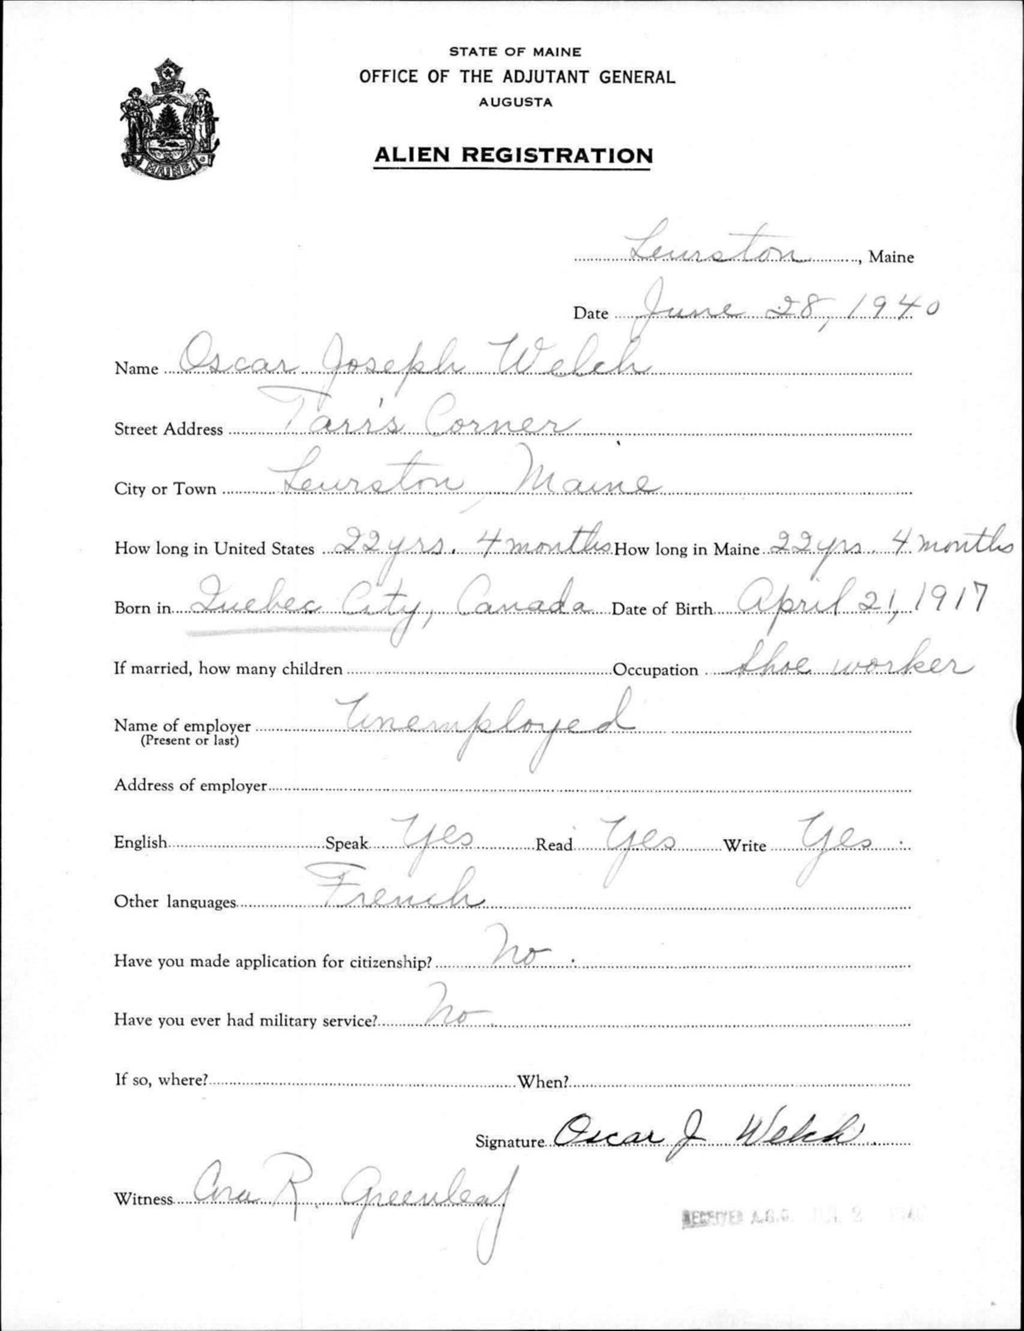 STATE OF MAINE
OFFICE OF THE ADJUTANT GENERAL
AUGUSTA
ALIEN REGISTRATION
MAINE
Lewiston, Maine
Date June 28, 1940
Name Oscar Joseph Welch
Street Address Tarr's Corner
City or Town Lewiston, Maine
How long in United States 22 yrs. 4 months How long in Maine 22 yrs. 4 months
Born in Quebec City, Canada Date of Birth April 21, 1917
If married, how many children Occupation Shoe worker
Name of employer Unemployed
(Present or last)
Address of employer
English Speak Yes Read Yes Write Yes.
Other languages French
Have you made application for citizenship? No.
Have you ever had military service? No.
If so, where? When?
Signature Oscar J Welch.
Witness Cora R. Greenleaf
RECEIVED A.G.O. JUL 2 1940